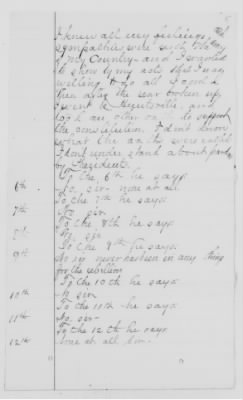 I knew all my feelings, and
sympathies were with the
of my Country and I wanted
to show by my acts that I was
willing to do all I could
then after the war broken up
I went to Huntsville, and
took an other oath to support
the constitution. I dont know
what the oaths were called
I dont understand about
by Presidents.
To the 6th he says
6th No. sir - none at all
To the 7th he says
7th No sir.
To the 8th he says
8th No, sir
To the 9th he says
9th No sir never has been in any thing
for the rebellion
To the 10th he says
10th No sir
To the 11th he says
11th No sir
To the 12th he says
12th None at all sir.